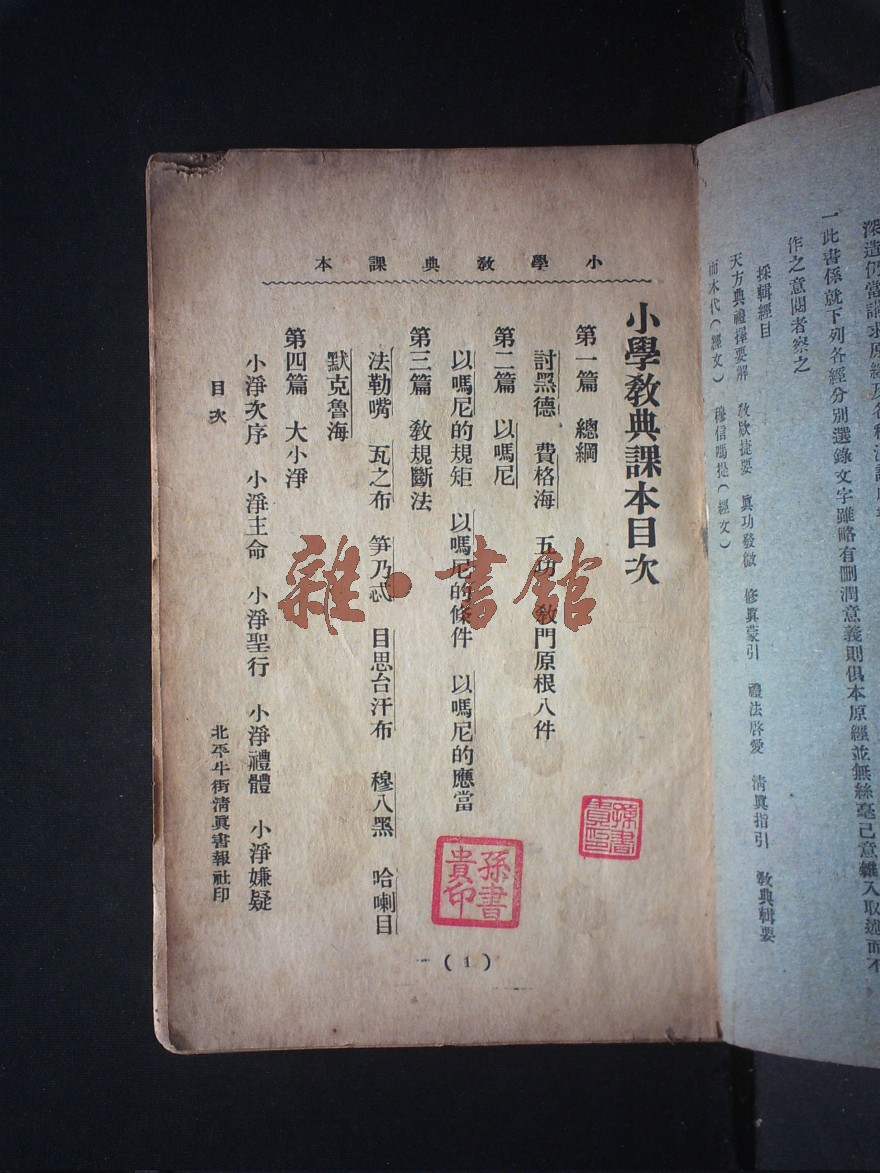 深造仍當講求原經及各種漢譯
一此書係就下列各經分別選錄文字雖略有刪潤意義則俱本原經並無絲毫己意雜入取迷而不
作之意閱者察之
採輯經目
天方典禮擇要解 教款捷要 眞功發微 修眞蒙引 禮法啓愛 淸眞指引 教典輯要
而木代(經文) 穆信嗎提(經文)
小學教典課本
小學教典課本目次
第一篇 總綱
討黑德 費格海 五功 教門原根八件
第二篇 以嗎尼
以嗎尼的規矩 以嗎尼的條件 以嗎尼的應當
第三篇 教規斷法
法勒嘴 瓦之布 笋乃忒 目思台汗布 穆八黑 哈喇目
默克魯海
第四篇 大小淨
小淨次序 小淨主命 小淨聖行 小淨禮體 小淨嫌疑
目次
北平牛街淸眞書報社印
(1)
孫書貴印
孫書貴印
雜·書館